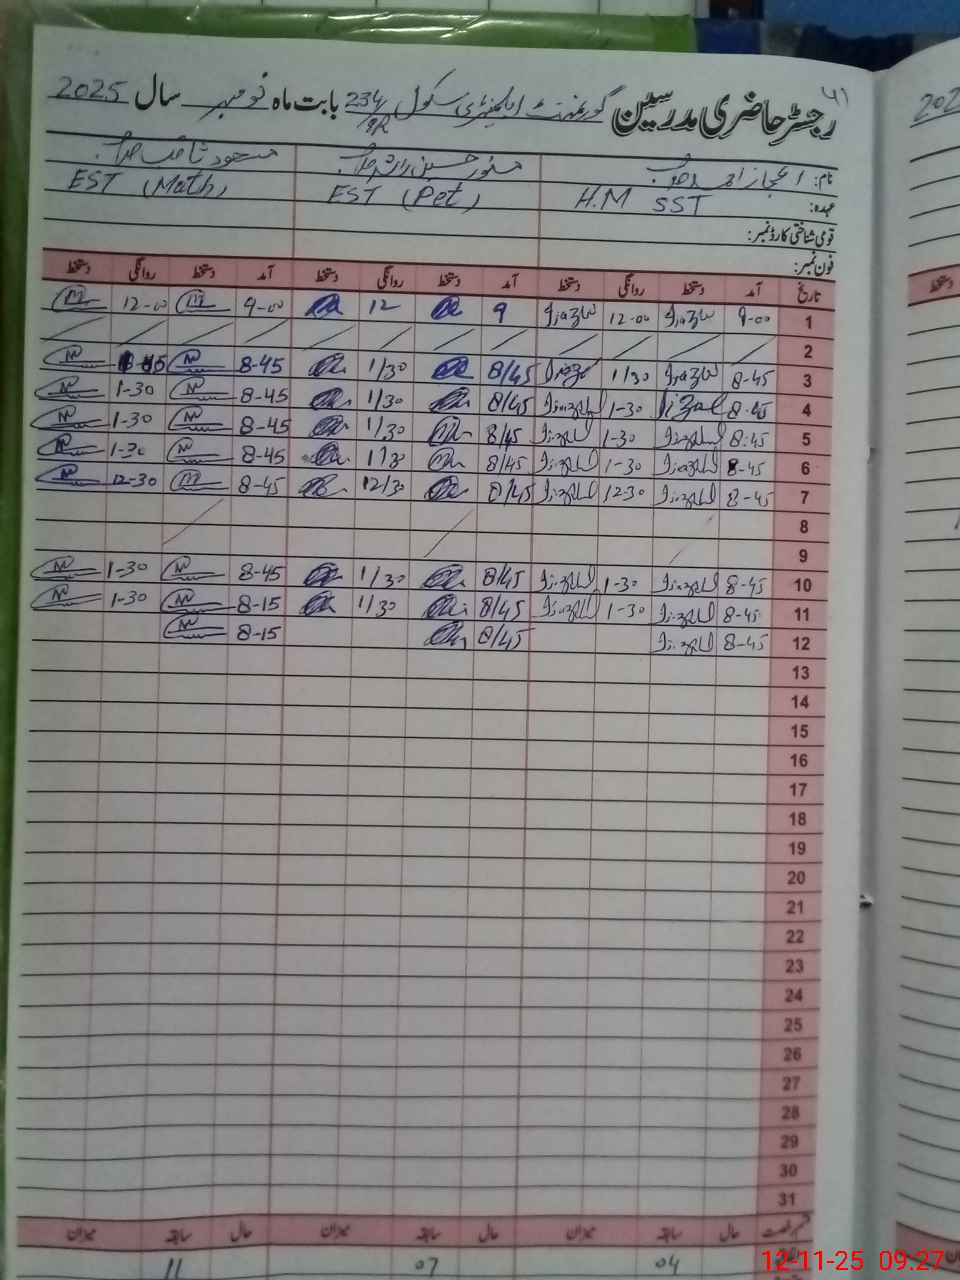 رجسٹر حاضری مدرسین گورنمنٹ ایلیمنٹری سکول 234/9R بابت ماہ نومبر سال 2025
نام: اعجاز احمد صاحب منور حسین راشد صاحب مسعود ثاقب صاحب
عہدہ: H.M SST EST (Pet) EST (Math)
قومی شناختی کارڈ نمبر:
فون نمبر:
تاریخ آمد دستخط روانگی دستخط آمد دستخط روانگی دستخط آمد دستخط روانگی دستخط
1 9-00 Ijaz 12-00 Ijaz 9 12 9-00 12-00
2
3 8-45 1/30 8/45 1/30 8-45
4 8-45 1-30 8/45 1/30 8-45 1-30
5 8:45 1-30 8/45 1/30 8-45 1-30
6 8-45 1-30 8/45 1/30 8-45 1-30
7 8-45 12-30 8/45 12/30 8-45 12-30
8
9
10 8-45 1-30 8/45 1/30 8-45 1-30
11 8-45 1-30 8/45 1/30 8-15 1-30
12 8-45 8/45 8-15
13
14
15
16
17
18
19
20
21
22
23
24
25
26
27
28
29
30
31
قسم رخصت حال سابقہ میزان حال سابقہ میزان حال سابقہ میزان
04 07 11
12-11-25 09:27